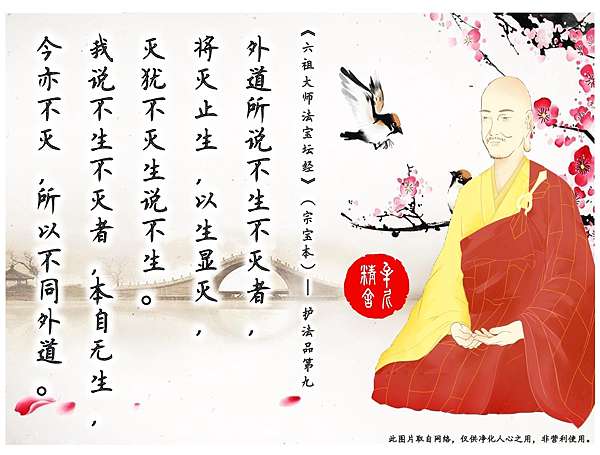 《六祖大师法宝坛经》（宗宝本）— 护法品第九
外道所说不生不灭者，
将灭止生，以生显灭，
灭犹不灭生说不生。
我说不生不灭者，本自无生，
今亦不灭，所以不同外道。
牟尼
精舍
此图片取自网络，仅供净化人心之用，非营利使用。